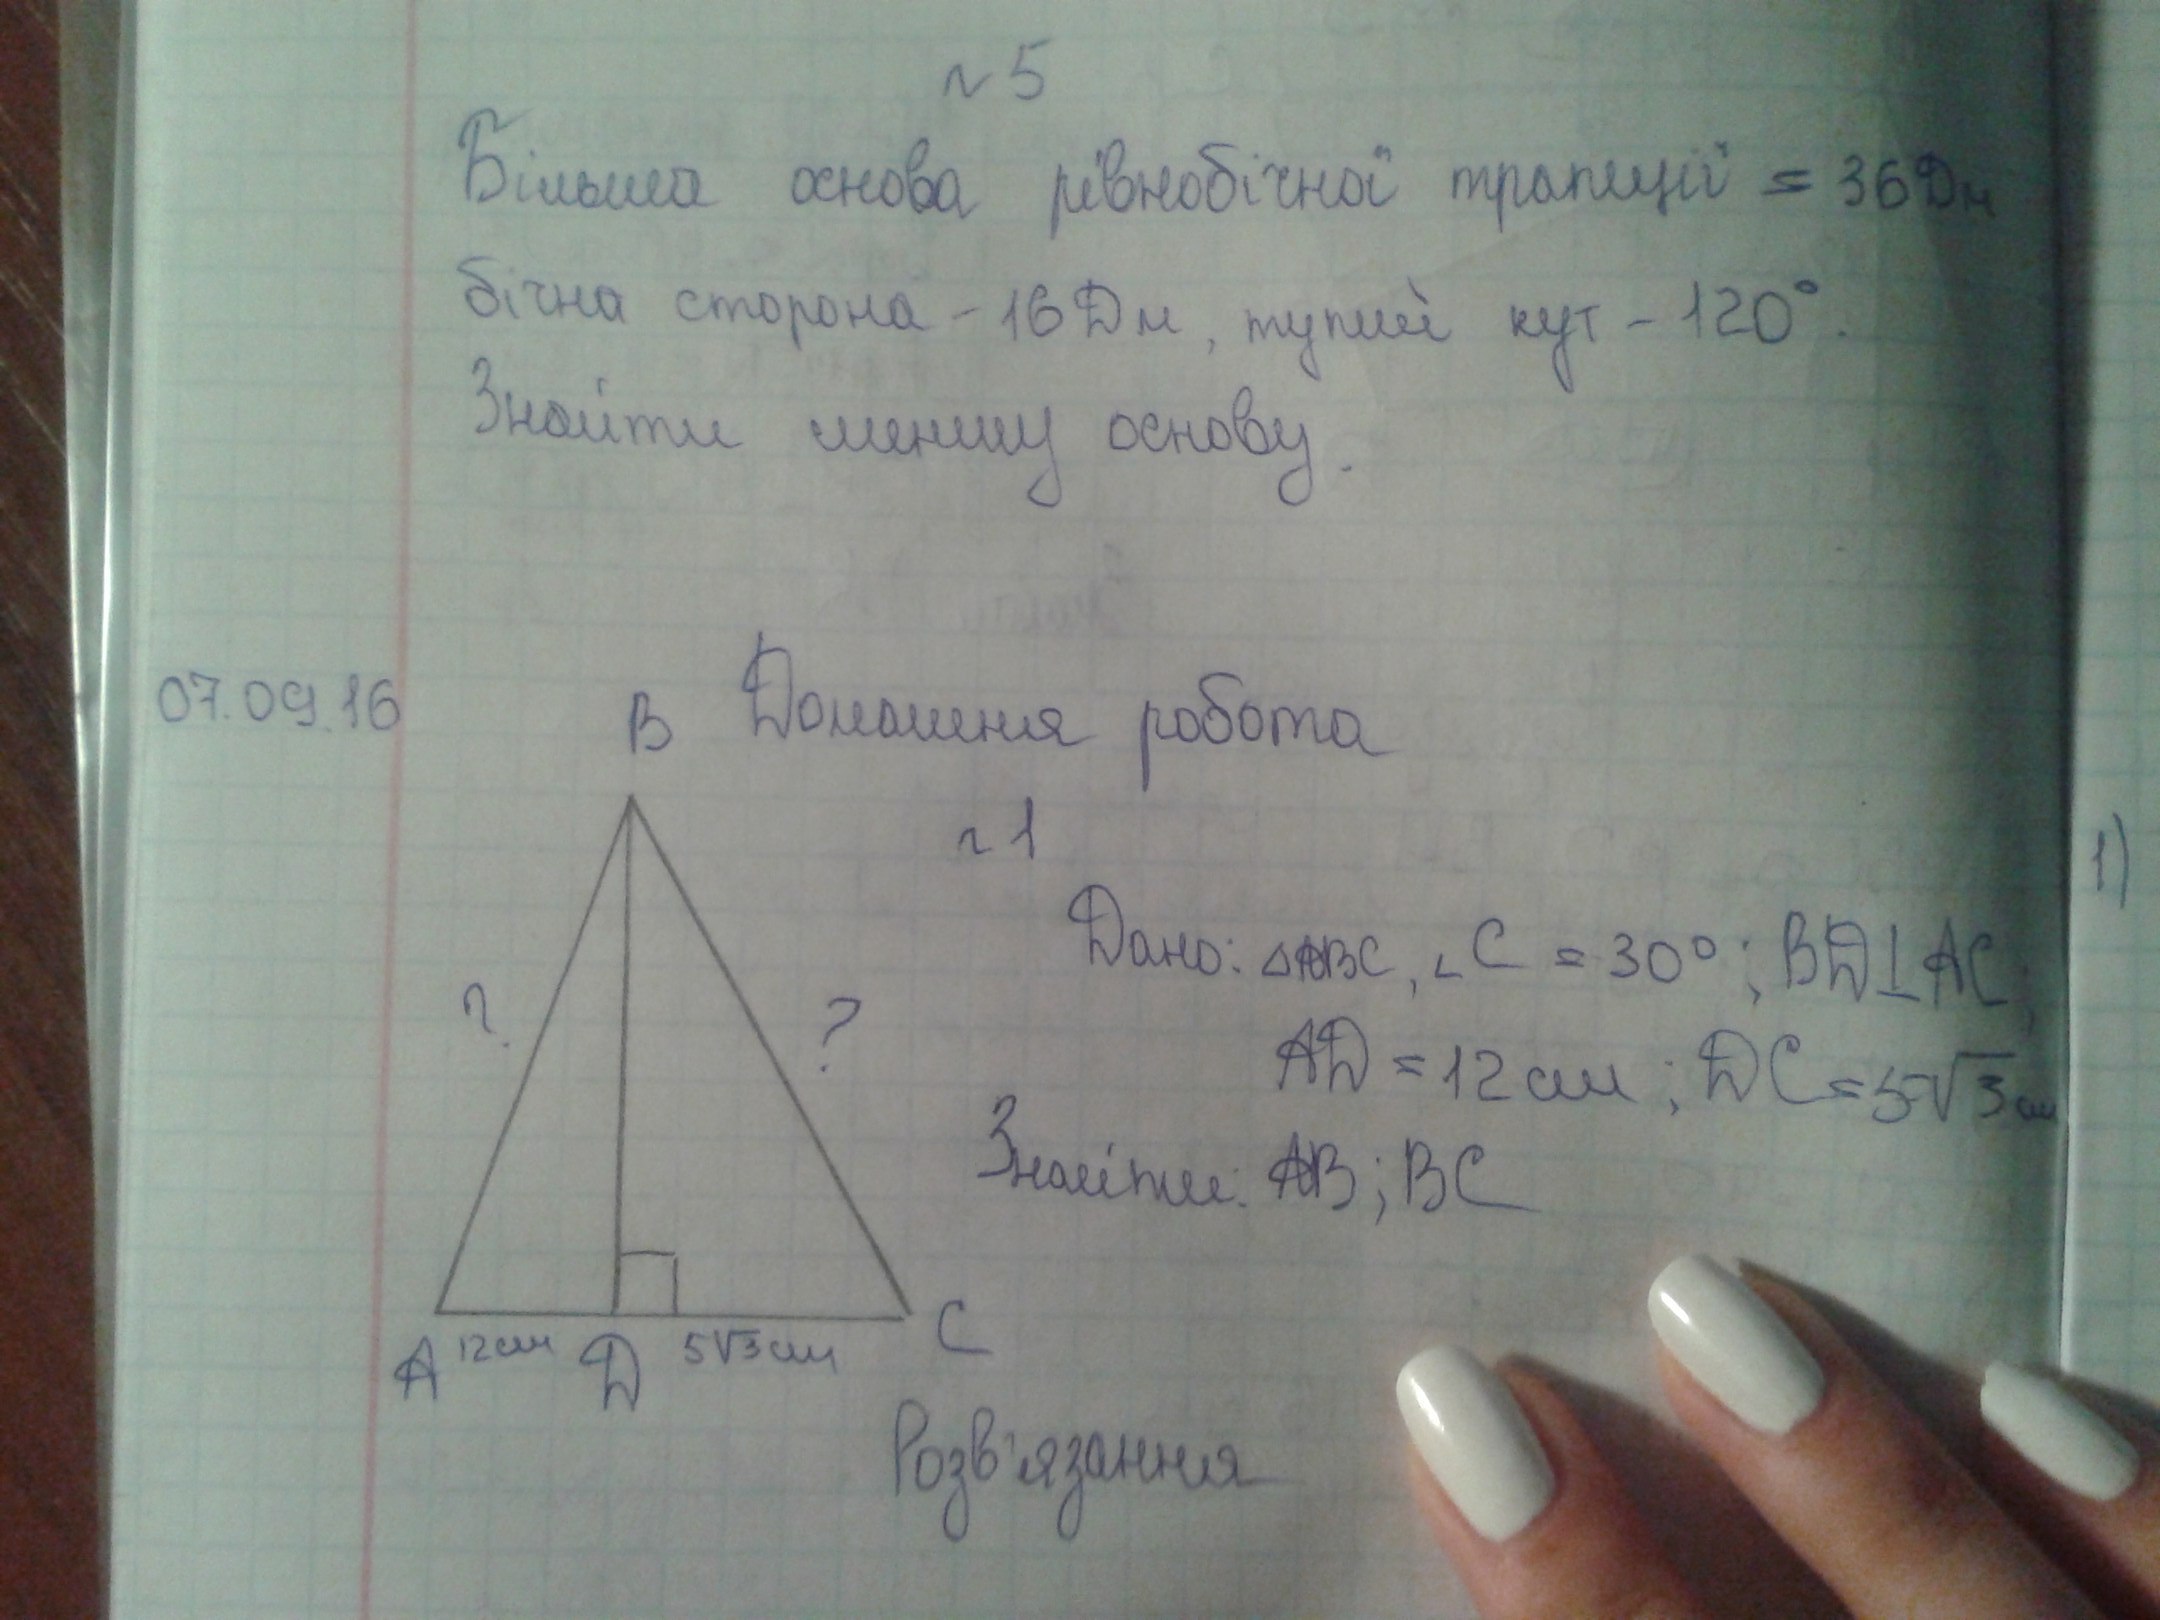 № 5
Більша основа рівнобічної трапеції = 36 Дм
бічна сторона - 16 Дм, тупий кут - 120°.
Знайти меншу основу.
07.09.16
Домашня робота
№ 1
B
Дано: △ABC, ∠C = 30°; BD⊥AC;
AD = 12 см; DC = 5√3 см
Знайти: AB; BC
?
?
A 12 см D 5√3 см C
Розв'язання
1)